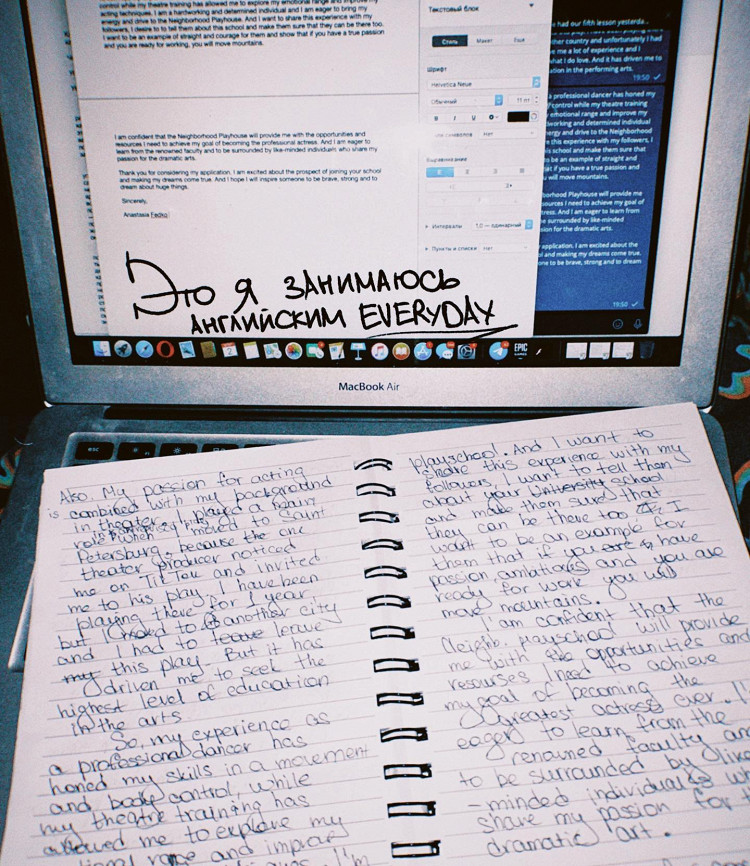 control while my theatre training has allowed me to explore my emotional range and improve my
acting techniques. I am a hardworking and determined individual and I am eager to bring my
energy and drive to the Neighborhood Playhouse. And I want to share this experience with my
followers, I desire to to tell them about this school and make them sure that they can be there too.
I want to be an example of straight and courage for them and show that if you have a true passion
and you are ready for working, you will move mountains.
I am confident that the Neighborhood Playhouse will provide me with the opportunities and
resources I need to achieve my goal of becoming the professional actress. And I am eager to
learn from the renowned faculty and to be surrounded by like-minded individuals who share my
passion for the dramatic arts.
Thank you for considering my application. I am excited about the prospect of joining your school
and making my dreams come true. And I hope I will inspire someone to be brave, strong and to
dream about huge things.
Sincerely,
Anastasia Fedko
Текстовый блок
Стиль Макет Еще
Шрифт
Helvetica Neue
Обычный 11 пт
B I U
Нет
Выравнивание
Интервалы 1,0 — одинарный
Пункты и списки Нет
had our fifth lesson yesterda
ther country and unfortunately I had
me a lot of experience and I
what I do love. And it has driven me to
ation in the performing arts.
19:50
a professional dancer has honed my
control while my theatre training
emotional range and improve my
dworking and determined individual
nergy and drive to the Neighborhood
e this experience with my followers, I
is school and make them sure that
o be an example of straight and
at if you have a true passion and
will move mountains.
borhood Playhouse will provide me
sources I need to achieve my goal of
tress. And I am eager to learn from
e surrounded by like-minded
sion for the dramatic arts.
application. I am excited about the
ol and making my dreams come true.
one to be brave, strong and to dream
19:50
Это я занимаюсь
английским EVERYDAY
EPIC
GAMES
MacBook Air
esc
Also. My passion for acting
is combined with my background
in theater. I played a main
role when I moved to Saint
Petersburg, because the one
theater producer noticed
me on TikTok and invited
me to his play. I have been
playing there for 1 year
but I moved to another city
and I had to leave leave
my this play. But it has
driven me to seek the
highest level of education
in the arts
So, my experience as
a professional dancer has
honed my skills in a movement
and body control, while
my theatre training has
allowed me to explore my
tional range and improv
playschool. And I want to
share this experience with my
followers, I want to tell them
about your University school
and make them sure that
they can be there too. I
want to be an example for
them that if you are have
passion, ambitions and you are
ready for work you will
move mountains.
I'am confident that the
Neighb. playschool will provide
me with opportunities and
resourses I need to achieve
my goal of becoming the
greatest actress ever. I'
eager to learn from the
renowned faculty and
to be surrounded by like
-minded individuals w
share my passion for t
dramatic art.